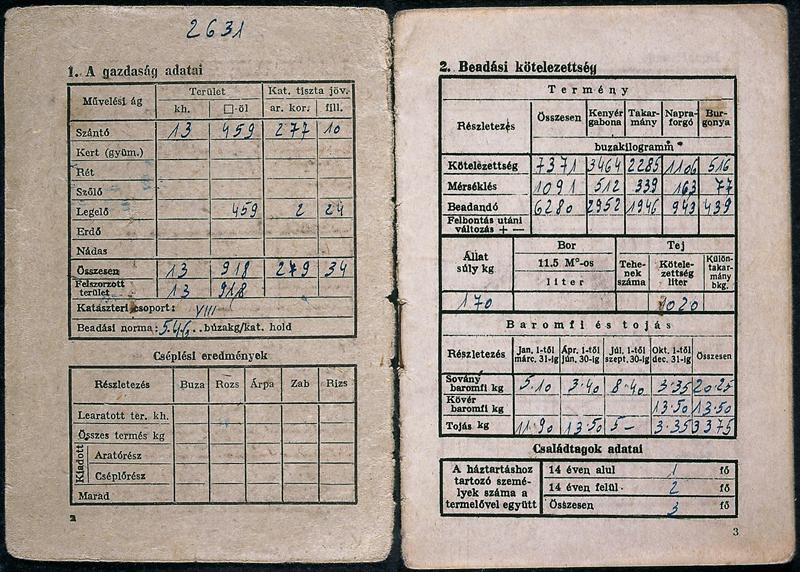 2631
1. A gazdaság adatai
Művelési ág Terület Kat. tiszta jöv.
kh. □-öl ar. kor. fill.
Szántó 13 459 277 10
Kert (gyüm.)
Rét
Szőlő
Legelő 459 2 24
Erdő
Nádas
Összesen 13 918 279 34
Felszorzott terület 13 918
Kataszteri csoport: VIII
Beadási norma: 546 búzakg/kat. hold
Cséplési eredmények
Részletezés Buza Rozs Árpa Zab Rizs
Learatott ter. kh.
Összes termés kg
Kiadott
Aratórész
Cséplőrész
Marad
2
2. Beadási kötelezettség
Termény
Részletezés Összesen Kenyérgabona Takarmány Napraforgó Burgonya
buzakilogramm
Kötelezettség 7371 3464 2285 1106 516
Mérséklés 1091 512 339 163 77
Beadandó 6280 2952 1946 943 439
Felbontás utáni változás + —
Állat súly kg Bor Tej
11.5 M°-os Tehenek száma Kötelezettség liter Különtakarmány bkg.
liter
170 1020
Baromfi és tojás
Részletezés Jan. 1-től márc. 31-ig Ápr. 1-től jún. 30-ig Júl. 1-től szept. 30-ig Okt. 1-től dec. 31-ig Összesen
Sovány baromfi kg 5.10 3.40 8.40 3.35 20.25
Kövér baromfi kg 13.50 13.50
Tojás kg 11.90 13.50 5- 3.35 33.75
Családtagok adatai
A háztartáshoz tartozó személyek száma a termelővel együtt
14 éven alul 1 fő
14 éven felül 2 fő
Összesen 3 fő
3